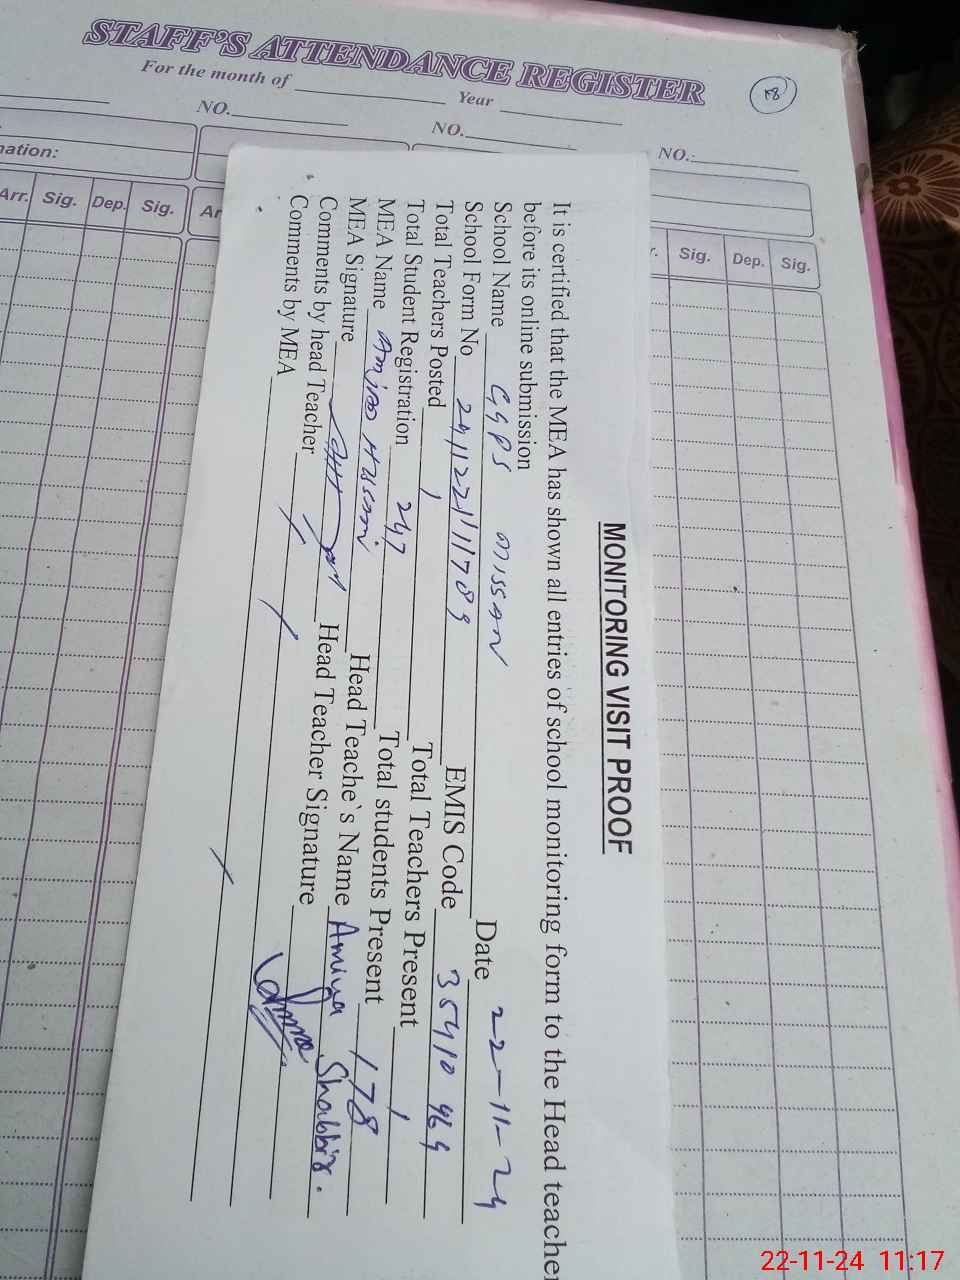 STAFF'S ATTENDANCE REGISTER
For the month of Year
NO. NO. NO.:
nation:
Arr. Sig. Dep. Sig. Ar Sig. Dep. Sig.
MONITORING VISIT PROOF
It is certified that the MEA has shown all entries of school monitoring form to the Head teacher
before its online submission
School Name GGPS missan Date 22-11-24
School Form No 241122111789 EMIS Code 35410464
Total Teachers Posted 1 Total Teachers Present 1
Total Student Registration 247 Total students Present 178
MEA Name Head Teache`s Name Amina Shabbir.
MEA Signature Head Teacher Signature
Comments by head Teacher
Comments by MEA
22-11-24 11:17